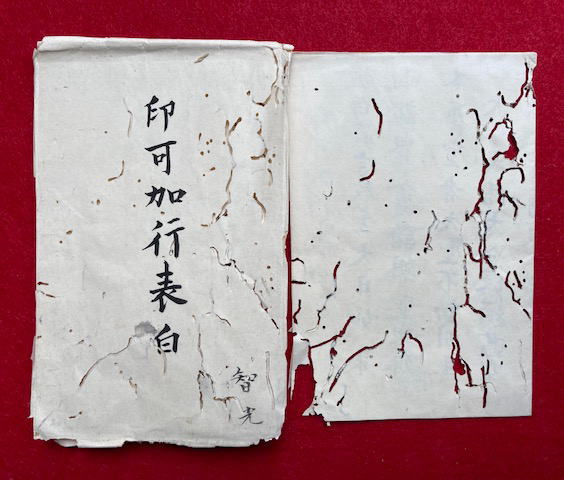 印可加行表白
智光